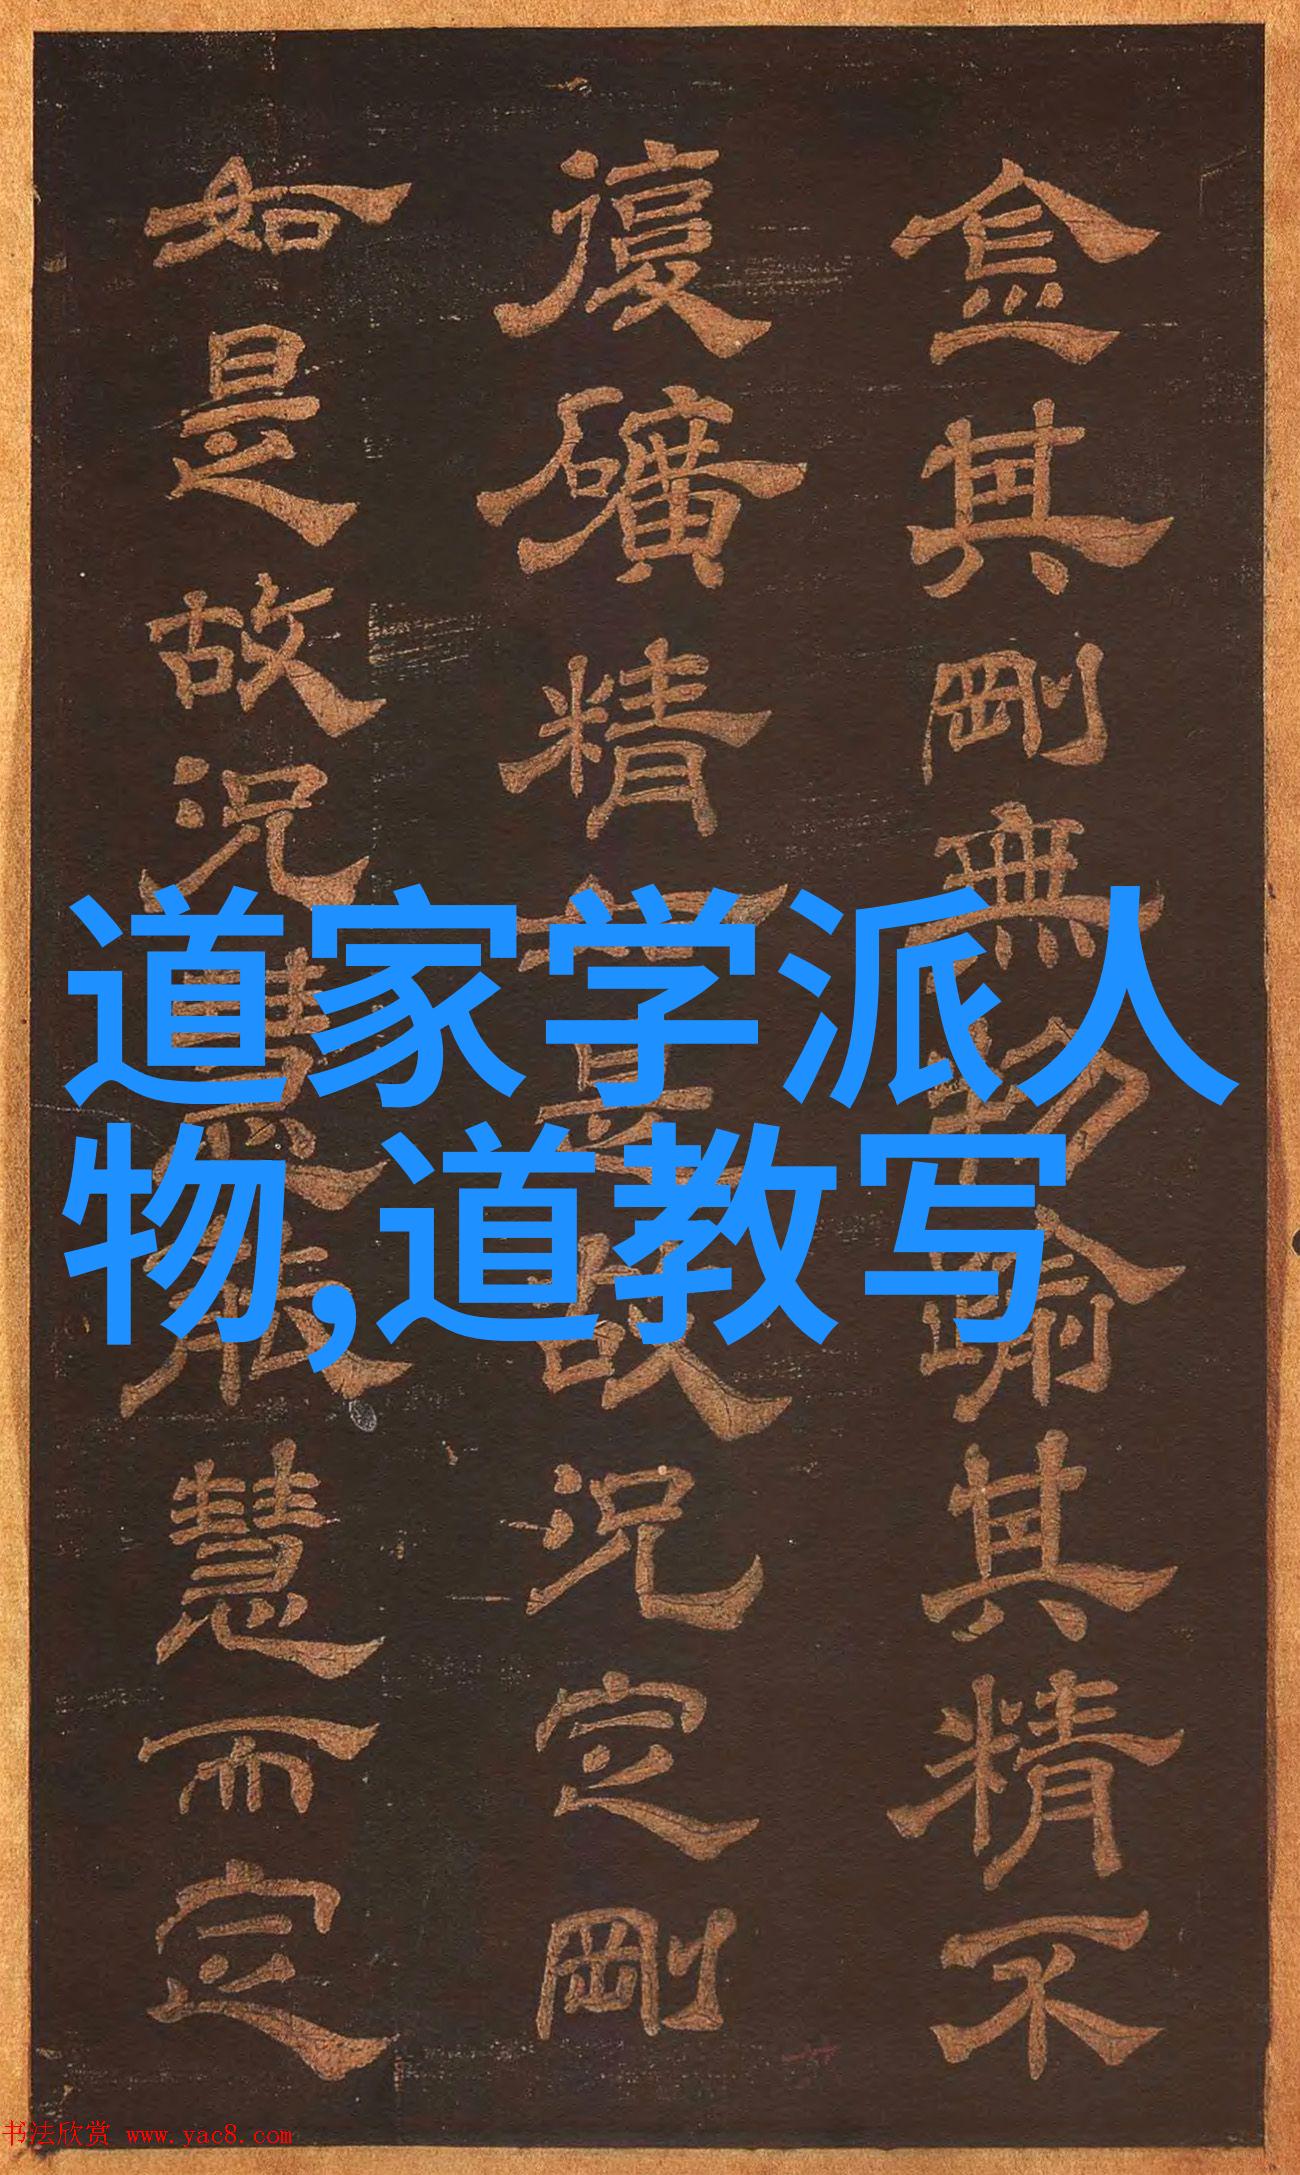 金其剛無物喻其精不
復礦精如是故況定剛
如是故況慧慧而定
道家学派人
物,道教写
书法欣赏 www.yac8.com